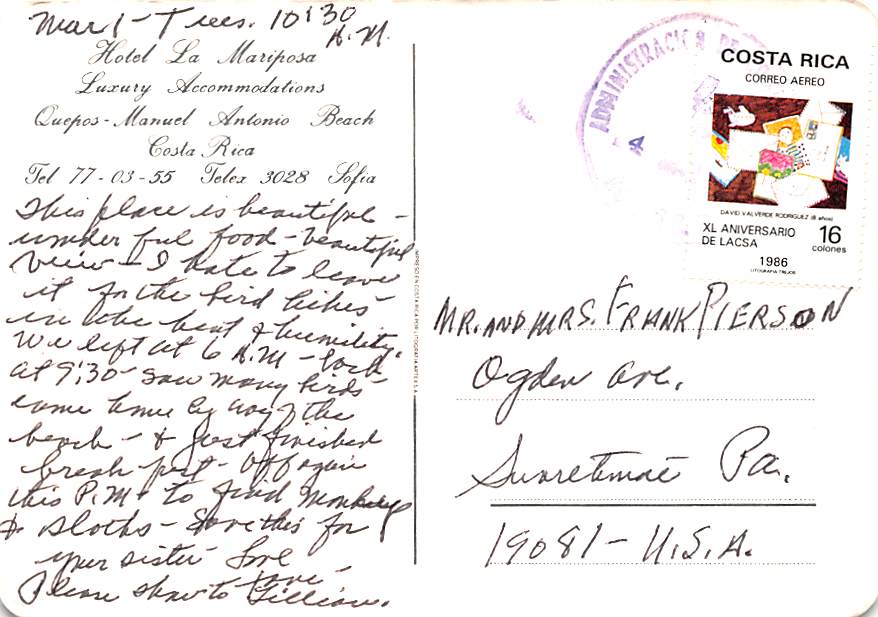 Mar 1 - Tues. 10:30
A.M.
Hotel La Mariposa
Luxury Accommodations
Quepos - Manuel Antonio Beach
Costa Rica
Tel 77-03-55 Telex 3028 Sofia
This place is beautiful -
wonderful food - beautiful
view - I hate to leave
it for the bird hikes -
in the heat & humility
We left at 6 A.M - back
at 9:30 - saw many birds -
came home by way of the
beach - & just finished
breakfast - off again
this P.M. to find monkeys
& sloths - Save this for
your sister Love
Please show to Lillian.
ADMINISTRACION DE
COSTA RICA
CORREO AEREO
DAVID VALVERDE RODRIGUEZ (8 años)
XL ANIVERSARIO
DE LACSA
16
colones
1986
LITOGRAFIA TREJOS
MR. AND MRS. FRANK PIERSON
Ogden Ave.
Swarthmore Pa.
19081 - U.S.A.